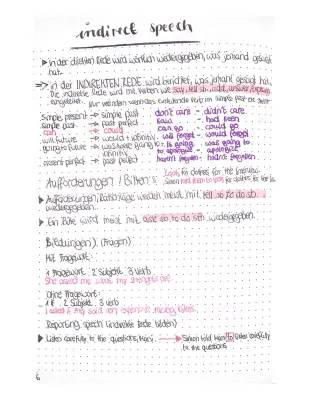 indirect speech
▶ In der direkten Rede wird wörtlich wiedergegeben, was jemand gesagt
hat.
⇒ in der INDIREKTEN REDE wird berichtet, was jemand gesagt hat.
Die indirekte Rede wird mit Verben wie say, tell sb, add, answer, explain
eingeleitet.
Nur verändern wenn das einleitende Verb im simple past
simple present → simple past
don't care - didn't care
simple past → past perfect
- had seen
can → could
can go - could go
will future → would + infinitiv
will forget - would forget
going to future → was/were going to +
infinitiv
is going - was going to
to apologise - apologise
present perfect → past perfect
haven't forgiven - hadn't forgiven
Aufforderungen / Bitten:
Look for clothes for the interview.
Simon told them to look for clothes for the
▶ Aufforderungen, Ratschläge werden meist mit tell sb to do sth
wiedergegeben.
▶ Eine Bitte wird meist mit ask sb to do sth wiedergegeben.
Bildungen: (Fragen)
Mit Fragewort:
1 Fragewort 2 Subjekt 3 verb
She asked me what my strengths are.
Ohne Fragewort:
1 if 2 Subjekt 3 verb
I asked if they sold
Reporting speech (indirekte Rede bilden)
▶ Listen carefully to the questions, Karri. → Simon told Karri to listen carefully
to the questions
6